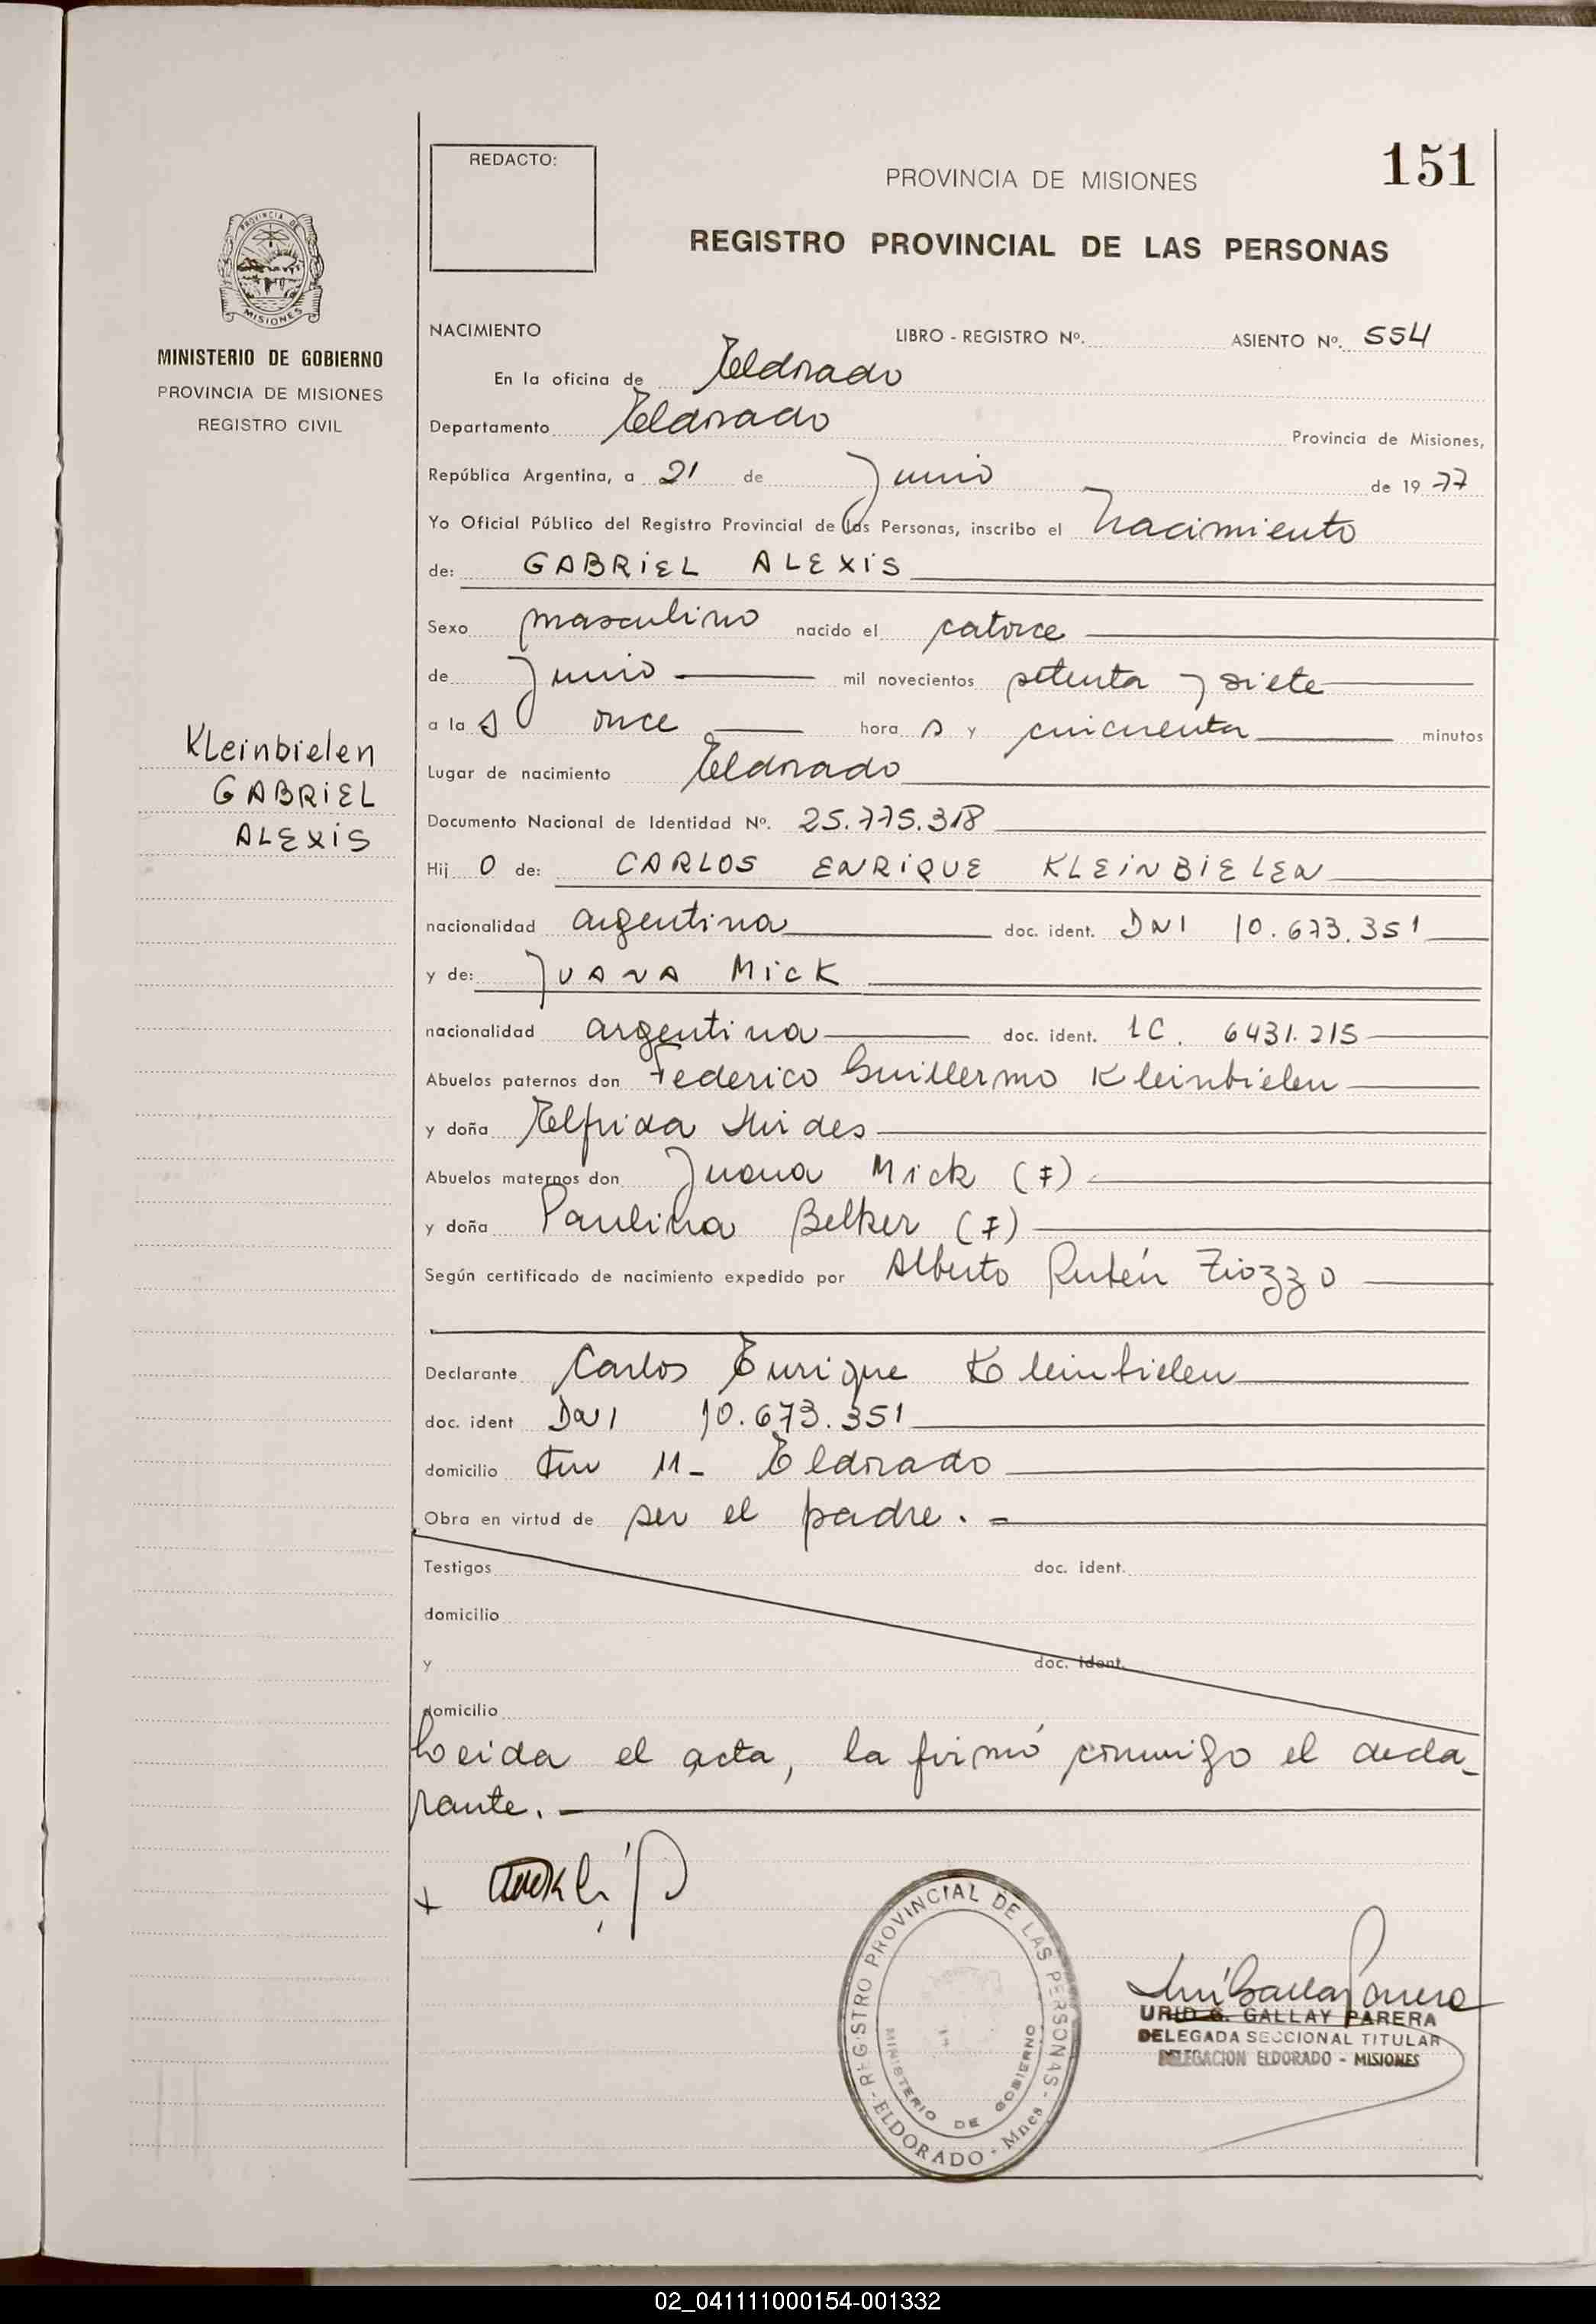 REDACTO:
PROVINCIA DE MISIONES
151
REGISTRO PROVINCIAL DE LAS PERSONAS
PROVINCIA DE
MISIONES
MINISTERIO DE GOBIERNO
PROVINCIA DE MISIONES
REGISTRO CIVIL
NACIMIENTO LIBRO - REGISTRO Nº. ASIENTO Nº. 554
En la oficina de Eldorado
Departamento Eldorado Provincia de Misiones,
República Argentina, a 21 de Junio de 19 77
Yo Oficial Público del Registro Provincial de las Personas, inscribo el Nacimiento
de: GABRIEL ALEXIS
Sexo masculino nacido el catorce
de Junio mil novecientos setenta y siete
a la s once hora s y cincuenta minutos
Lugar de nacimiento Eldorado
Kleinbielen
GABRIEL
ALEXIS
Documento Nacional de Identidad Nº. 25.775.318
Hij o de: CARLOS ENRIQUE KLEINBIELEN
nacionalidad argentina doc. ident. DNI 10.673.351
y de: JUANA MICK
nacionalidad argentina doc. ident. LC. 6431.215
Abuelos paternos don Federico Guillermo Kleinbielen
y doña Elfrida
Abuelos maternos don Juana Mick (F)
y doña Paulina Belker (F)
Según certificado de nacimiento expedido por Alberto Rubén
Declarante Carlos Enrique Kleinbielen
doc. ident DNI 10.673.351
domicilio Km 11- Eldorado
Obra en virtud de ser el padre. =
Testigos doc. ident.
domicilio
y doc. ident.
domicilio
Leida el acta, la firmó conmigo el decla-
rante. -
REGISTRO PROVINCIAL DE LAS PERSONAS - ELDORADO - Mnes
MINISTERIO DE GOBIERNO
G. GALLAY PARERA
DELEGADA SECCIONAL TITULAR
DELEGACION ELDORADO - MISIONES
02_041111000154-001332